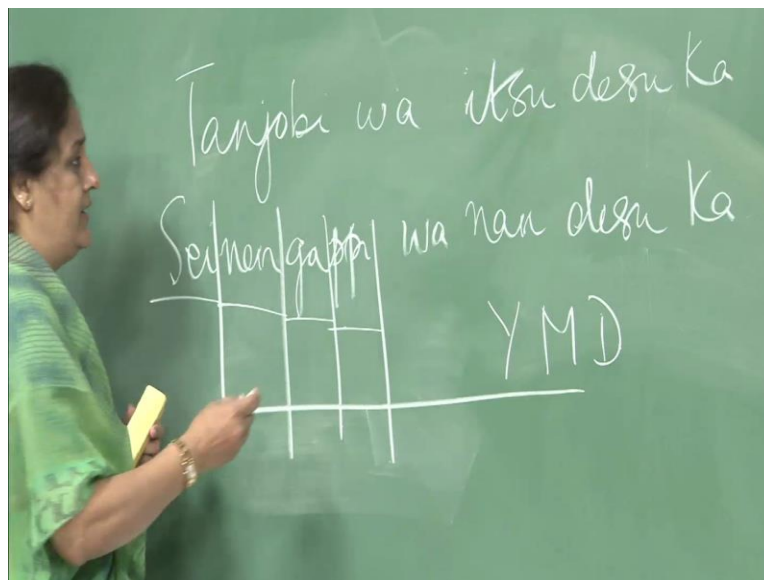 Tanjobi wa itsu desu ka
Seinengappi wa nan desu ka
YMD